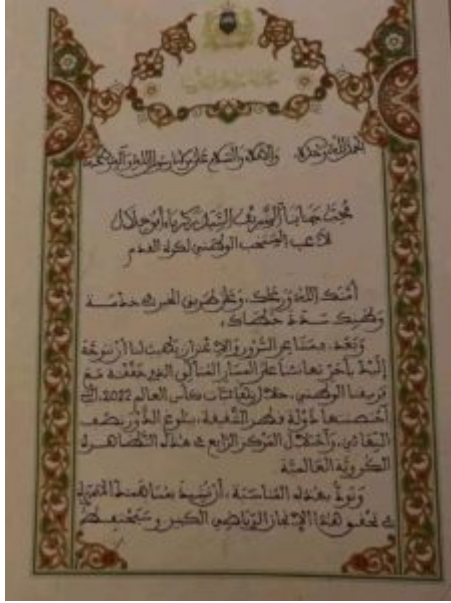 الحمد لله وحده والصلاة والسلام على مولانا رسول الله وآله وصحبه
محب جنابنا الشريف السيد زكرياء أبو خلال
لاعب المنتخب الوطني لكرة القدم
أمنك الله ورعاك، وعلى طريق الخير في خدمة
وطنك سدد خطاك،
وبعد، فمن بالسرور والاعتزاز يطيب لنا أن نتوجه
إليك بأحر تهانئنا على المسار المتألق الذي حققته مع
فريقنا الوطني، خلال نهائيات كأس العالم 2022، التي
احتضنتها دولة قطر الشقيقة، ببلوغ الدور نصف
النهائي، واحتلال المركز الرابع في هذه التظاهرة
الكروية العالمية
ونود بهذه المناسبة، أن نشيد بمساهمتك
في تحقيق هذا الإنجاز الرياضي الكبير